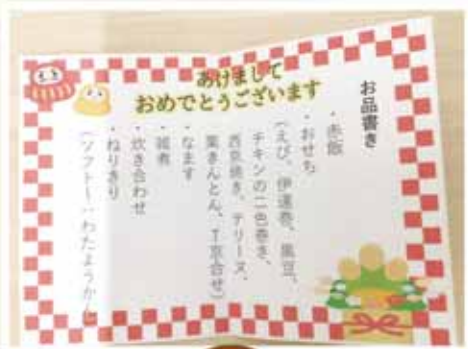 あけまして
おめでとうございます
お品書き
・赤飯
・おせち
(えび、伊達巻、黒豆、
チキンの二色巻き、
西京焼き、テリーヌ、
栗きんとん、T京合せ)
・なます
・雑煮
・炊き合わせ
・ねりきり
(ソフト…わたようかん)